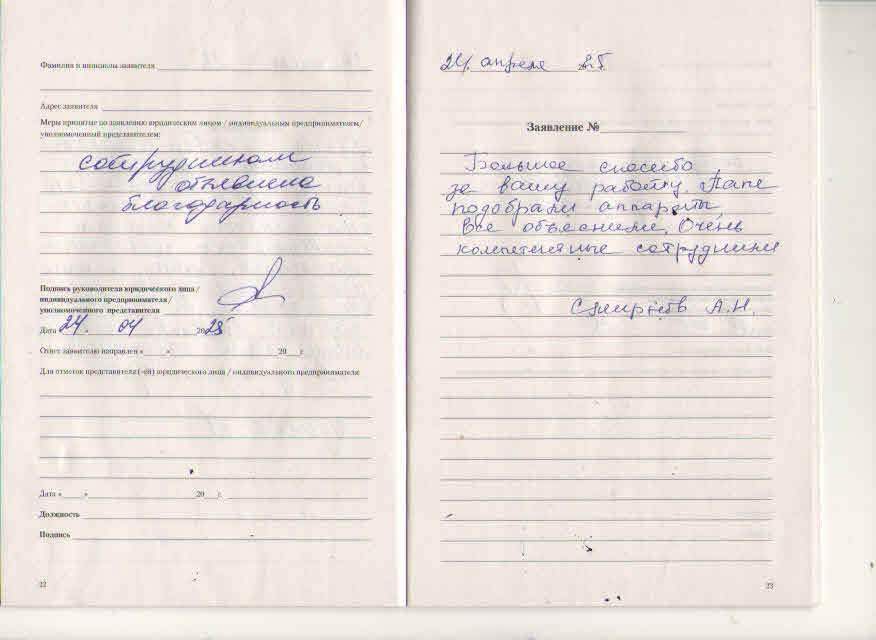 Фамилия и инициалы заявителя
Адрес заявителя
Меры принятые по заявлению юридическим лицом / индивидуальным предпринимателем/
уполномоченный представителем:
сотрудникам
объявлена
благодарность
Подпись руководителя юридического лица /
индивидуального предпринимателя /
уполномоченного представителя
Дата 24. 04 2025
Ответ заявителю направлен «____»____________20___г.
Для отметок представителя (-ей) юридического лица / индивидуального предпринимателя
Дата «____»____________20___г.
Должность
Подпись
22
24. апреля 25г.
Заявление №
Большое спасибо
за вашу работу. Папе
подобрали аппараты
Все объяснили. Очень
компетентные сотрудники
Смирнов А.Н.
23